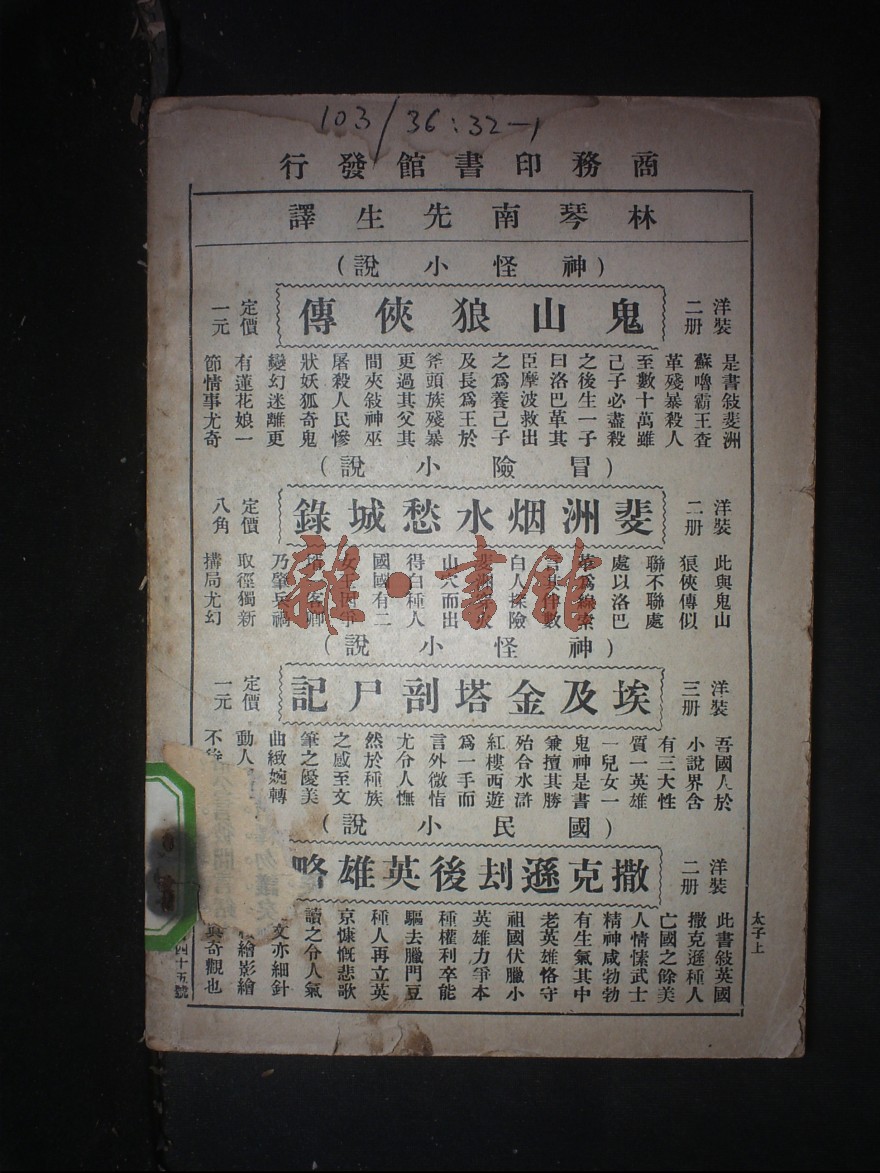 103/36:32-1
商務印書館發行
林琴南先生譯
(神怪小說)
洋裝
二册
鬼山狼俠傳
定價
一元
是書敍斐洲
蘇嚕霸王查
革殘暴殺人
至數十萬雖
己子必盡殺
之後生一子
曰洛巴革其
臣摩波救出
之爲養己子
及長爲王於
斧頭族殘暴
更過其父其
間夾敍神巫
屠殺人民慘
狀妖狐奇鬼
變幻迷離更
有蓮花娘一
節情事尤奇
(冒險小說)
洋裝
二册
斐洲烟水愁城錄
定價
八角
此與鬼山
狼俠傳似
聯不聯處
處以洛巴
革爲線索
言其伴數
白人探險
斐洲穿火
山穴而出
得白種人
國國有二
女王因爭
所客卿
乃肇兵禍
取徑獨新
搆局尤幻
(神怪小說)
洋裝
三册
埃及金塔剖尸記
定價
一元
吾國人於
小說界含
有三大性
質一英雄
一兒女一
鬼神是書
兼擅其勝
殆合水滸
紅樓西遊
爲一手而
言外微情
尤令人憮
然於種族
之感至文
筆之優美
曲緻婉轉
動人
不
(國民小說)
洋裝
二册
撒克遜刦後英雄略
此書敍英國
撒克遜種人
亡國之餘美
人情愫武士
精神咸勃勃
有生氣其中
老英雄恪守
祖國伏臘小
英雄力爭本
種權利卒能
驅去臘門豆
種人再立英
京慷慨悲歌
讀之令人氣
文亦細針
繪影繪
眞奇觀也
太子上
四十五號
雜·書館